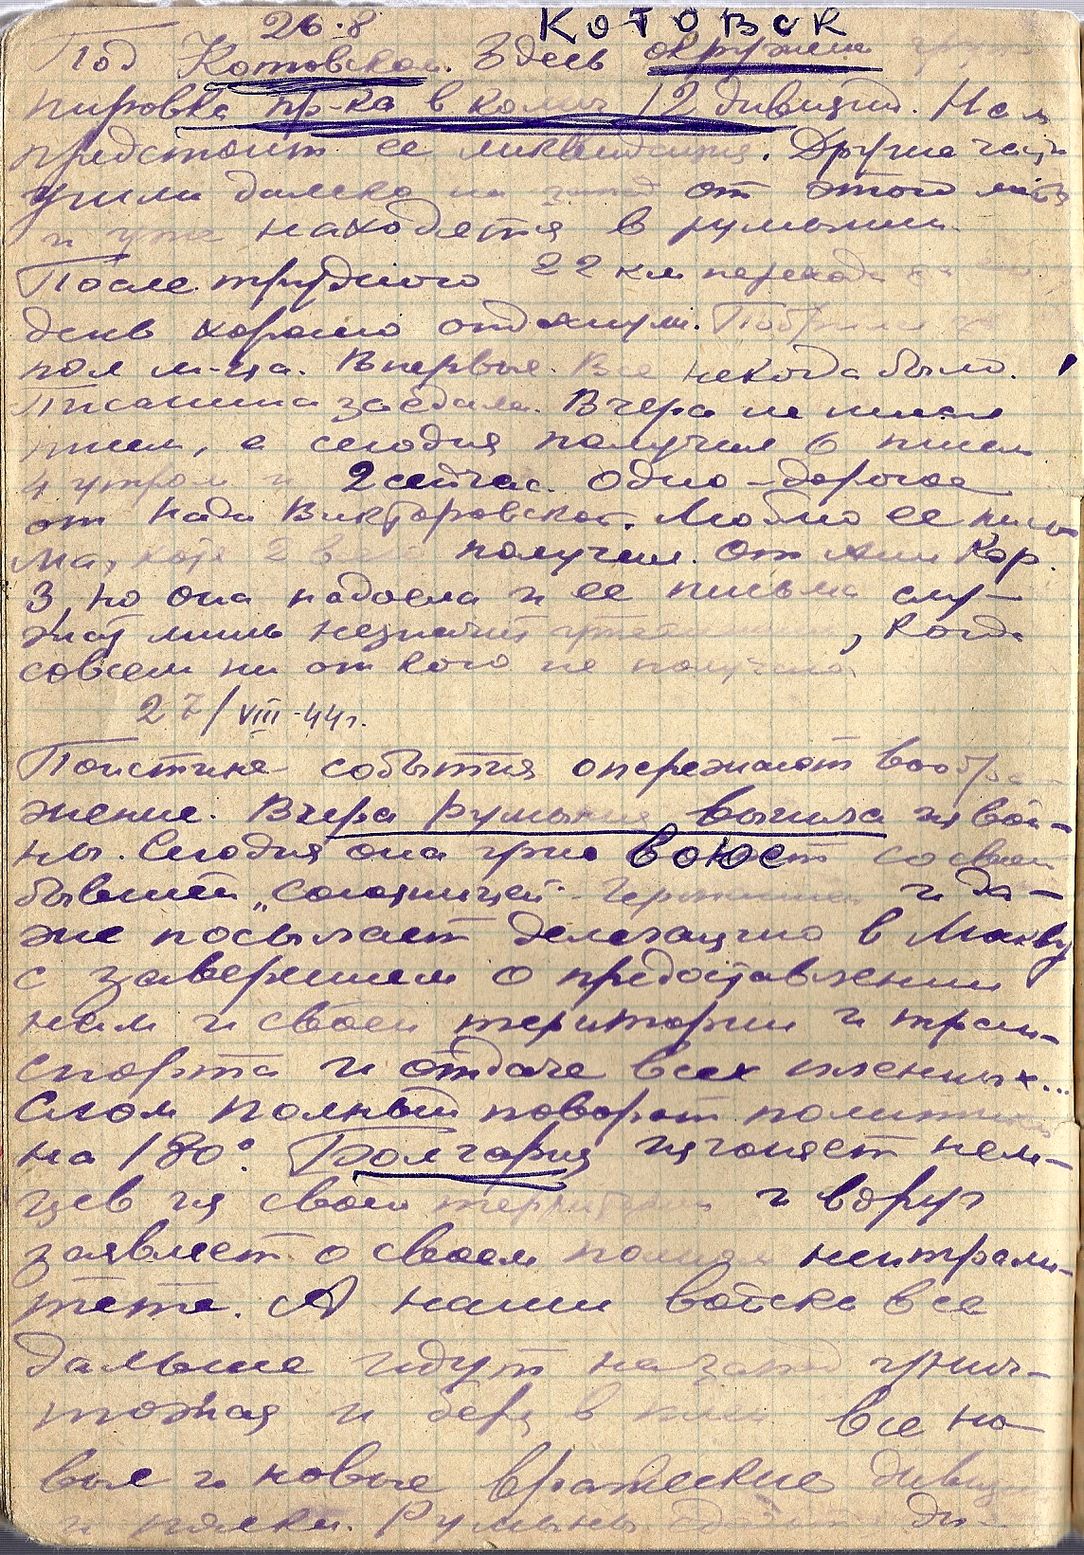 26.8 КОТОВСК
Под Котовском. Здесь окружена груп
пировка пр-ка в колич 12 дивизий. Нам
предстоит ее ликвидация. Другие части
ушли далеко на запад от этого места
и уже находятся в румынии.
После трудного 22 км перехода
день хорошо отдохнули.
пол м-ца. Впервые. Все некогда было.
Писанина заедала. Вчера не писал
писем, а сегодня получил 6 писем
4 утром и 2 сейчас. Одно - дорогое
от Нади Викторовской. Люблю ее пись
ма, хотя 2 всего получил. От Ани Кор.
3, но она надоела и ее письма слу-
жат лишь незначит утешением, когда
совсем ни от кого не получишь
27/VIII-44г.
Поистине события опережают вообра-
жение. Вчера Румыния вышла из вой-
ны. Сегодня она уже воюет со своей
бывшей „союзницей" Германией и да-
же посылает делегацию в Москву
с заверением о предоставлении
нам и своей територии и тран-
спорта и отдаче всех пленных...
Слом полный поворот политики
на 180°. Болгария изгоняет нем-
цев из своей территории и вдруг
заявляет о своем полном нейтрали-
тете. А наши войска все
дальше идут на запад унич-
тожая и беря в плен все но-
вые и новые вражеские дивизии
и полки. Румыны ди-